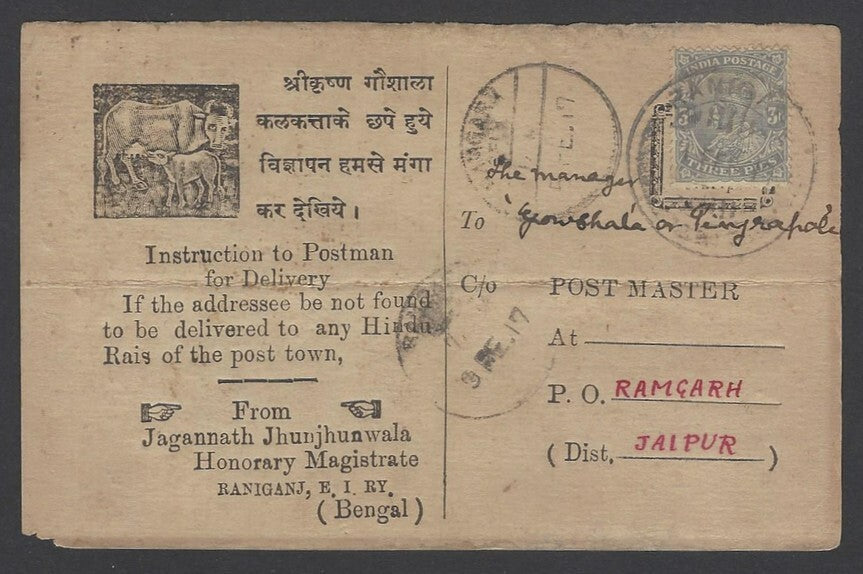 श्रीकृष्ण गौशाला
कलकत्ताके छपे हुये
विज्ञापन हमसे मंगा
कर देखिये ।
Instruction to Postman
for Delivery
If the addressee be not found
to be delivered to any Hindu
Rais of the post town,
From
Jagannath Jhunjhunwala
Honorary Magistrate
RANIGANJ, E. I. RY.
( Bengal )
INDIA POSTAGE
3P 3P
THREE PIES
The manager
To Gowshala or Pinjrapole
C/o POST MASTER
At
P. O. RAMGARH
( Dist. JAIPUR )
FE. 17
9 FE. 17